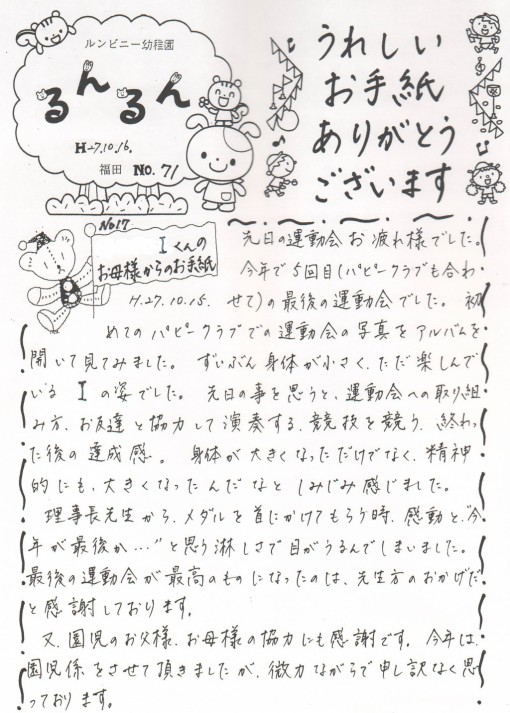 ルンビニー幼稚園
るんるん
H27.10.16.
福田 NO.71
うれしい
お手紙
ありがとう
ございます
No17
Iくんの
お母様からのお手紙
H.27.10.15.
先日の運動会お疲れ様でした。
今年で5回目(パピークラブも合わ
せて)の最後の運動会でした。初
めてのパピークラブでの運動会の写真をアルバムを
開いて見てみました。ずいぶん身体が小さく、ただ楽しんで
いるIの姿でした。先日の事を思うと、運動会への取り組
み方、お友達と協力して演奏する、競技を競う、終わっ
た後の達成感。身体が大きくなっただけでなく、精神
的にも、大きくなったんだなと しみじみ感じました。
理事長先生から、メダルを首にかけてもらう時、感動と、“今
年が最後か…”と思う淋しさで目がうるんでしまいました。
最後の運動会が最高のものになったのは、先生方のおかげだ
と感謝しております。
又、園児のお父様、お母様の協力にも感謝です。今年は、
園児係をさせて頂きましたが、微力ながらで申し訳なく思
っております。